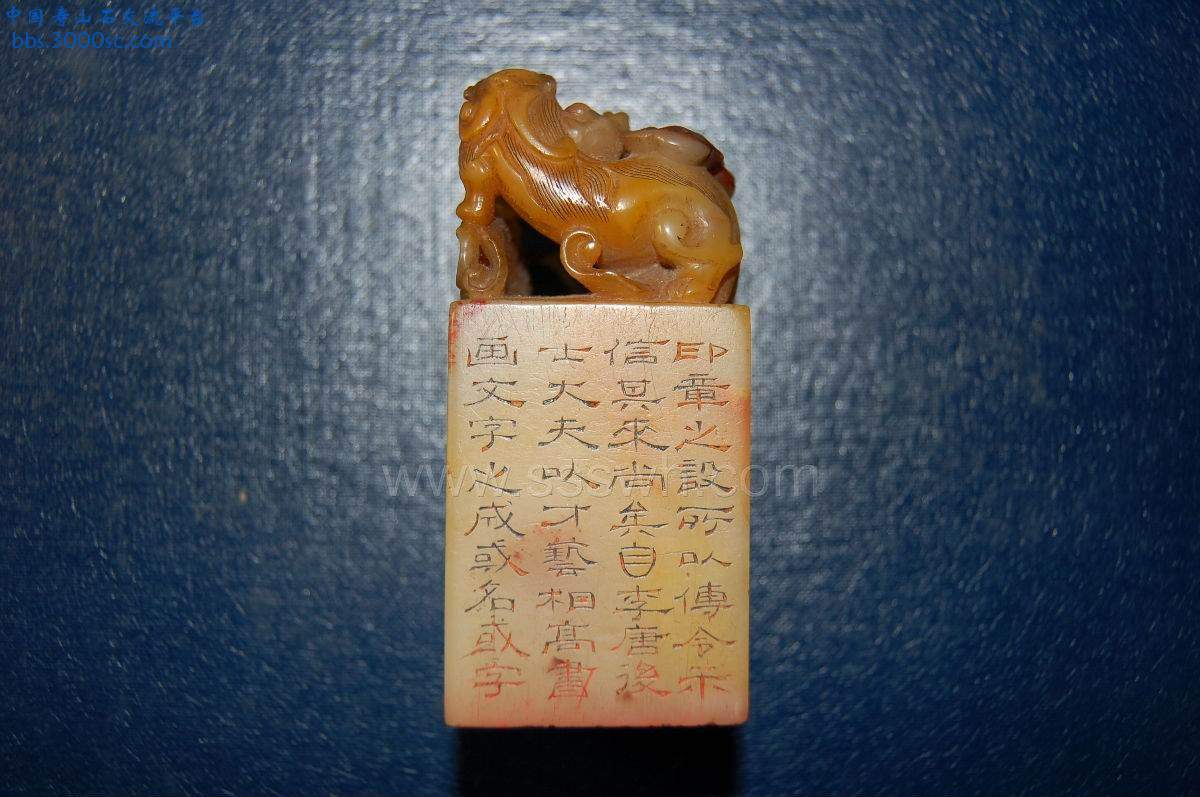 中国寿山石交流平台
bbs.3000sc.com
印章之設所以傳令示
信其來尚矣自李唐後
士大夫以才藝相高書
画文字之成或名或字